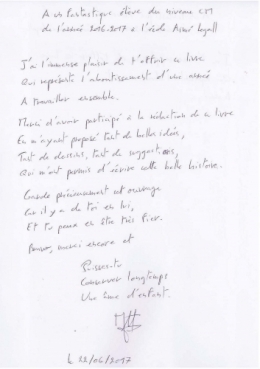 A un fantastique élève du niveau CM1
de l'année 2016-2017 à l'école André Legall
J'ai l'immense plaisir de t'offrir ce livre
Qui représente l'aboutissement d'une année
A travailler ensemble.
Merci d'avoir participé à la rédaction de ce livre
En m'ayant proposé tant de belles idées,
Tant de dessins, tant de suggestions,
Qui m'ont permis d'écrire cette belle histoire.
Garde précieusement cet ouvrage
Car il y a de toi en lui,
Et tu peux en être très fier.
Bravo, merci encore et
Puisses-tu
Conserver longtemps
Une âme d'enfant.
Le 22/06/2017